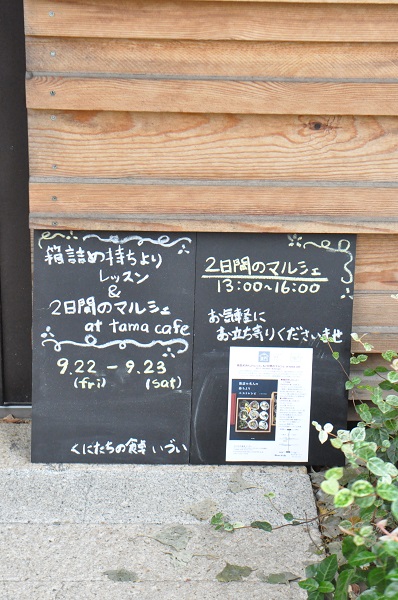 箱詰め持ちより
レッスン
&
2日間のマルシェ
at tama cafe
9.22 - 9.23
(fri) (sat)
くにたちの食卓 いづい
2日間のマルシェ
13:00~16:00
お気軽に
お立ち寄りくださいませ